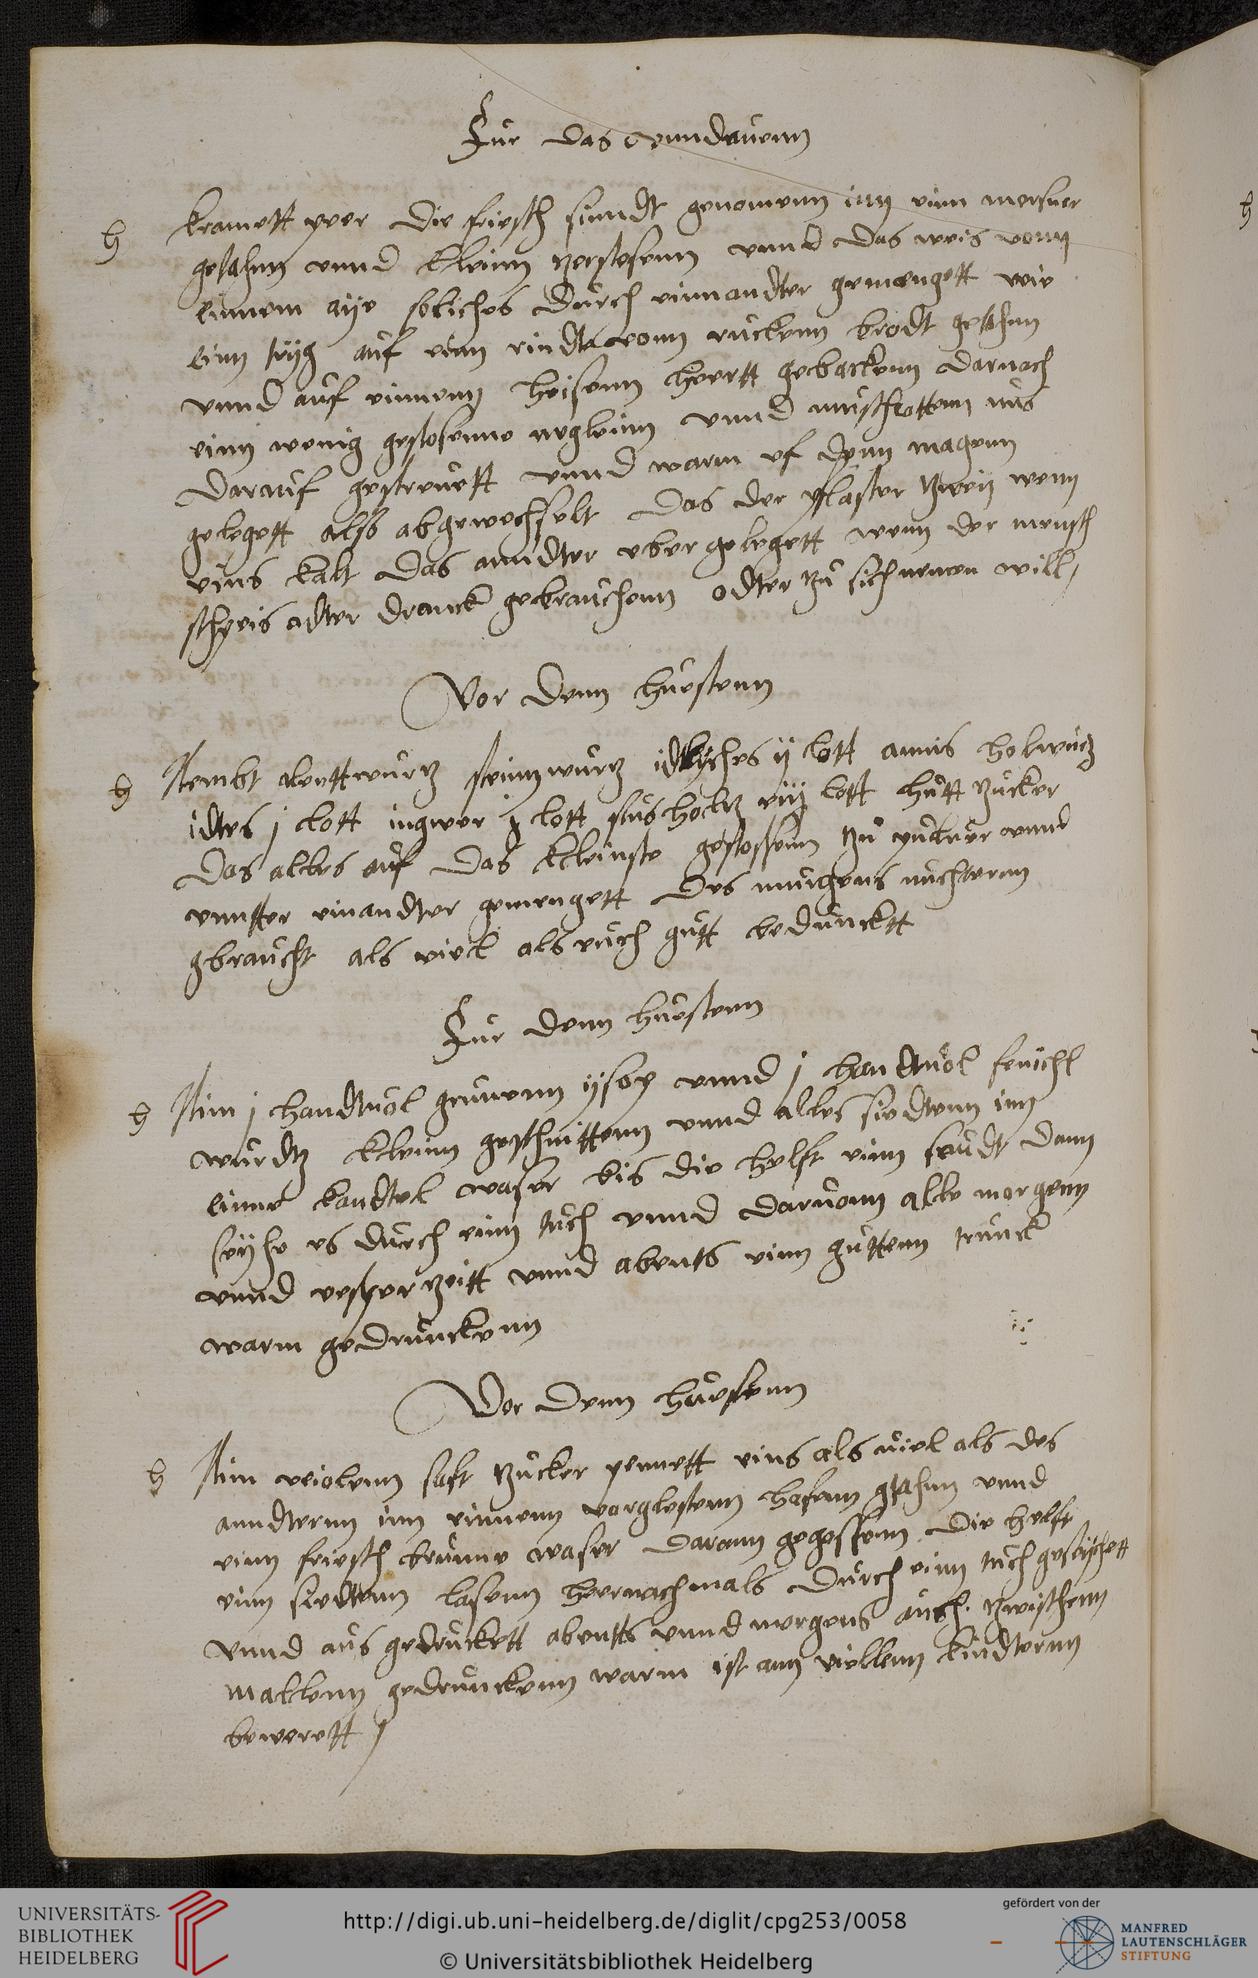 Fur das unndeuenn
kramett peer die friesch sinndt genomenn inn einn merser
gethann vnnd kleinn zerstosenn vnnd das weis vonn
einnem aÿe soliches durch einnandter gemengett wie
einn teÿg auf einn rindte vonn ruckenn brodt gethann
vnnd auf einnenn heisenn heertt gebackenn darnach
einn wenig gestosenne neglein vnnd muschkottenn nus
darauf gestreuett vnnd warm vf denn magenn
gelegett also abgewechselt das der pflaster zweÿ wenn
eins kalt das anndter vber gelegett wenn der mensch
speis adter dranck gebrauchenn odter zu sich nemen will
Vor denn huestenn
Nembt alenttwurtz steinnwurtz idtliches ij lott annis holwurtz
idtes j lott ingwer lott sushoeltz lott hutt zucker
das alles auf das kleinste gestossenn zu puluer vnnd
vnntter einandter gemengett des murgens nuchternn
gbraucht als viel als euch gutt bedunckett
Fur denn huestenn
Nim j handtuol gruenenn ÿsop vnnd j handtuol fenichl
wurdtz kleinn geschnittenn vnnd alles siedtenn inn
einne kandtel waser bis die helft einn seudt dann
seÿhe es durch einn tuch vnnd daruonn alle morgenn
vnnd vesper zeitt vnnd abents einn guttenn trunck
warm gedrunckenn
Vor denn huestenn
Nim veiolenn saft zucker penett eins als uiel als des
anndternn inn einnenn verglestenn hafenn gethann vnnd
einn friesch brunne waser darann gegossenn die helft
einn siedtenn lasenn heernachmals durch einn tuch geseÿhett
vnnd aus gedruckett abentts vnnd morgens auch zwischenn
mallenn gedrunckenn warm ist ann viellenn kindternn
bewerett
UNIVERSITÄTS-
BIBLIOTHEK
HEIDELBERG
http://digi.ub.uni-heidelberg.de/diglit/cpg253/0058
© Universitätsbibliothek Heidelberg
gefördert von der
MANFRED
LAUTENSCHLÄGER
STIFTUNG